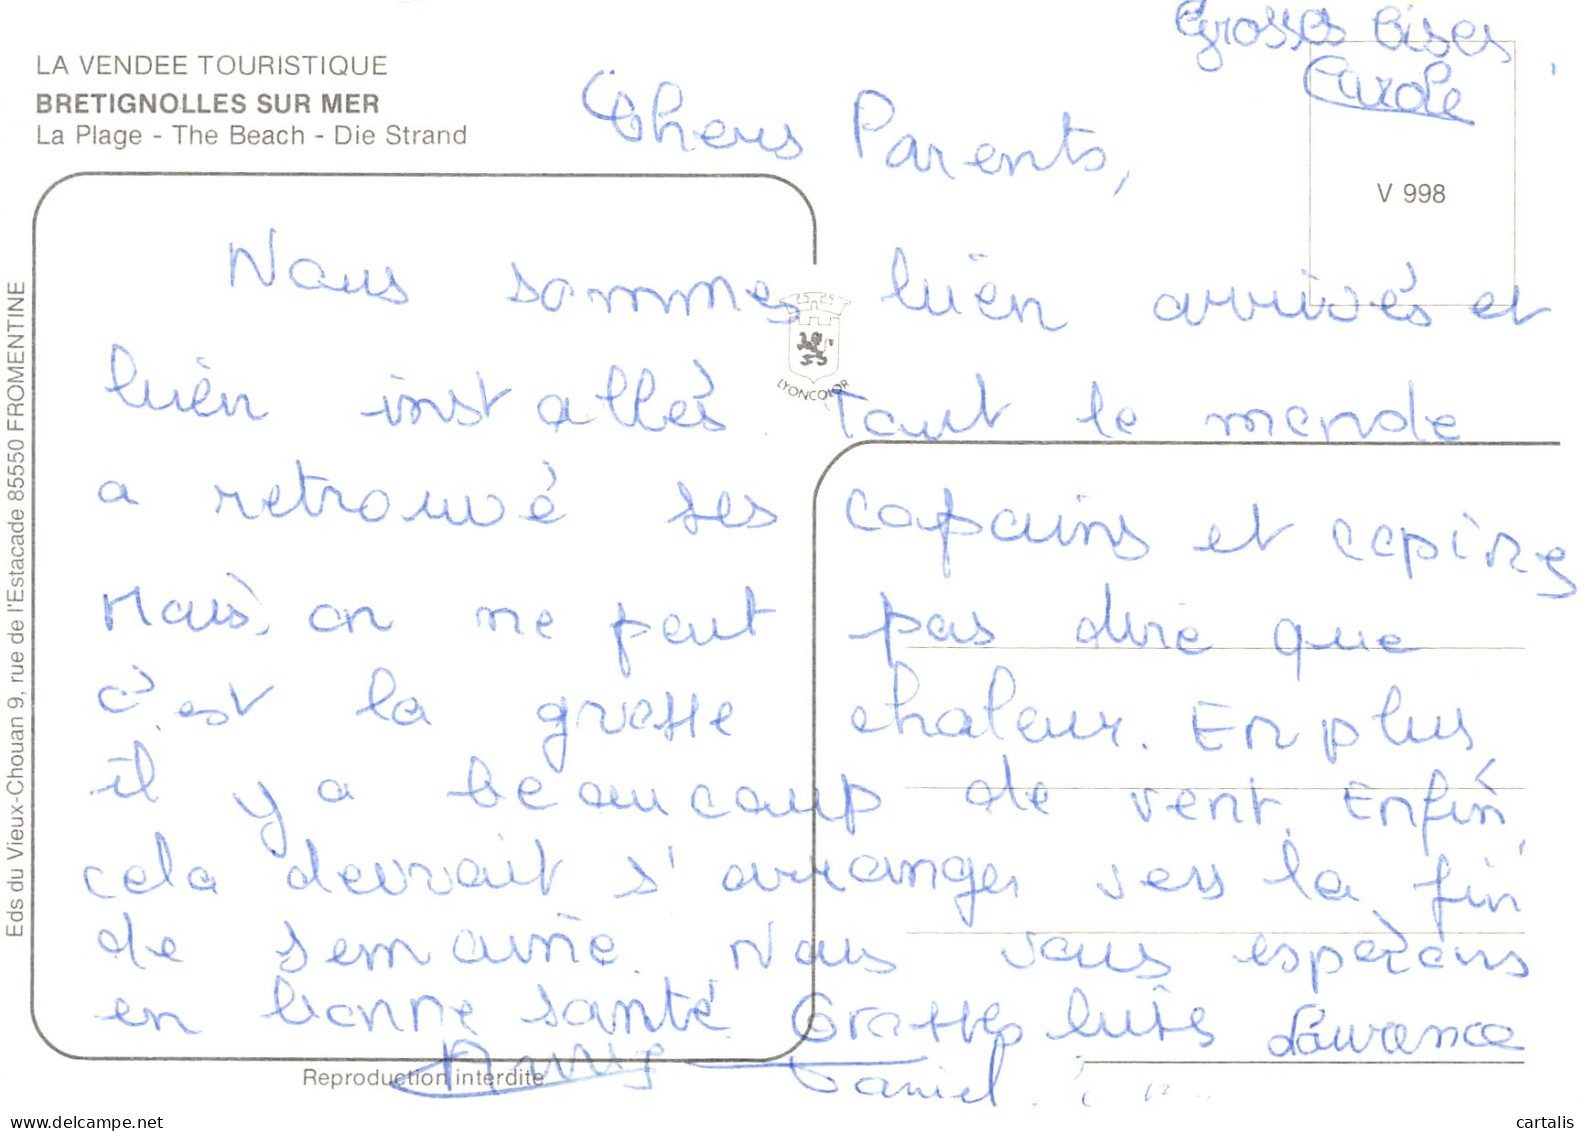 Grosses bises
Carole
LA VENDEE TOURISTIQUE
BRETIGNOLLES SUR MER
La Plage - The Beach - Die Strand
V 998
Chers Parents,
Nous sommes bien arrivés et
bien installés. Tout le monde
a retrouvé ses copains et copines
Mais, on ne peut pas dire que
c'est la grosse chaleur. En plus
il y a beaucoup de vent. Enfin,
cela devrait s'arranger vers la fin
de semaine. Nous vous espérons
en bonne santé Grosses bises Laurence
Daniel
LYONCOLOR
Reproduction interdite
Eds du Vieux-Chouan 9, rue de l'Estacade 85550 FROMENTINE
www.delcampe.net
cartalis